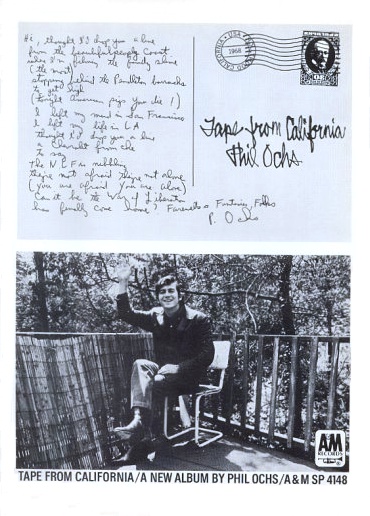 Hi, thought I'd drop you a line
from the beautiful people Coast
(the most)
stopping behind the Pendleton barracks
to get high
(tonight american pigs you die!)
I left my mind in San Francisco
I left my life in L.A
thought I'd drop you a
to say
The N L F is nibbling
they're not afraid they're not alone
(you are afraid you are alone)
Can it be the War of Liberation
has finally come home? Farewells & Fantasies, Folks
P. Ochs
CALIFORNIA • USA
1968
Tape from California
Phil Ochs
A&M
RECORDS
TAPE FROM CALIFORNIA/A NEW ALBUM BY PHIL OCHS/A&M SP 4148